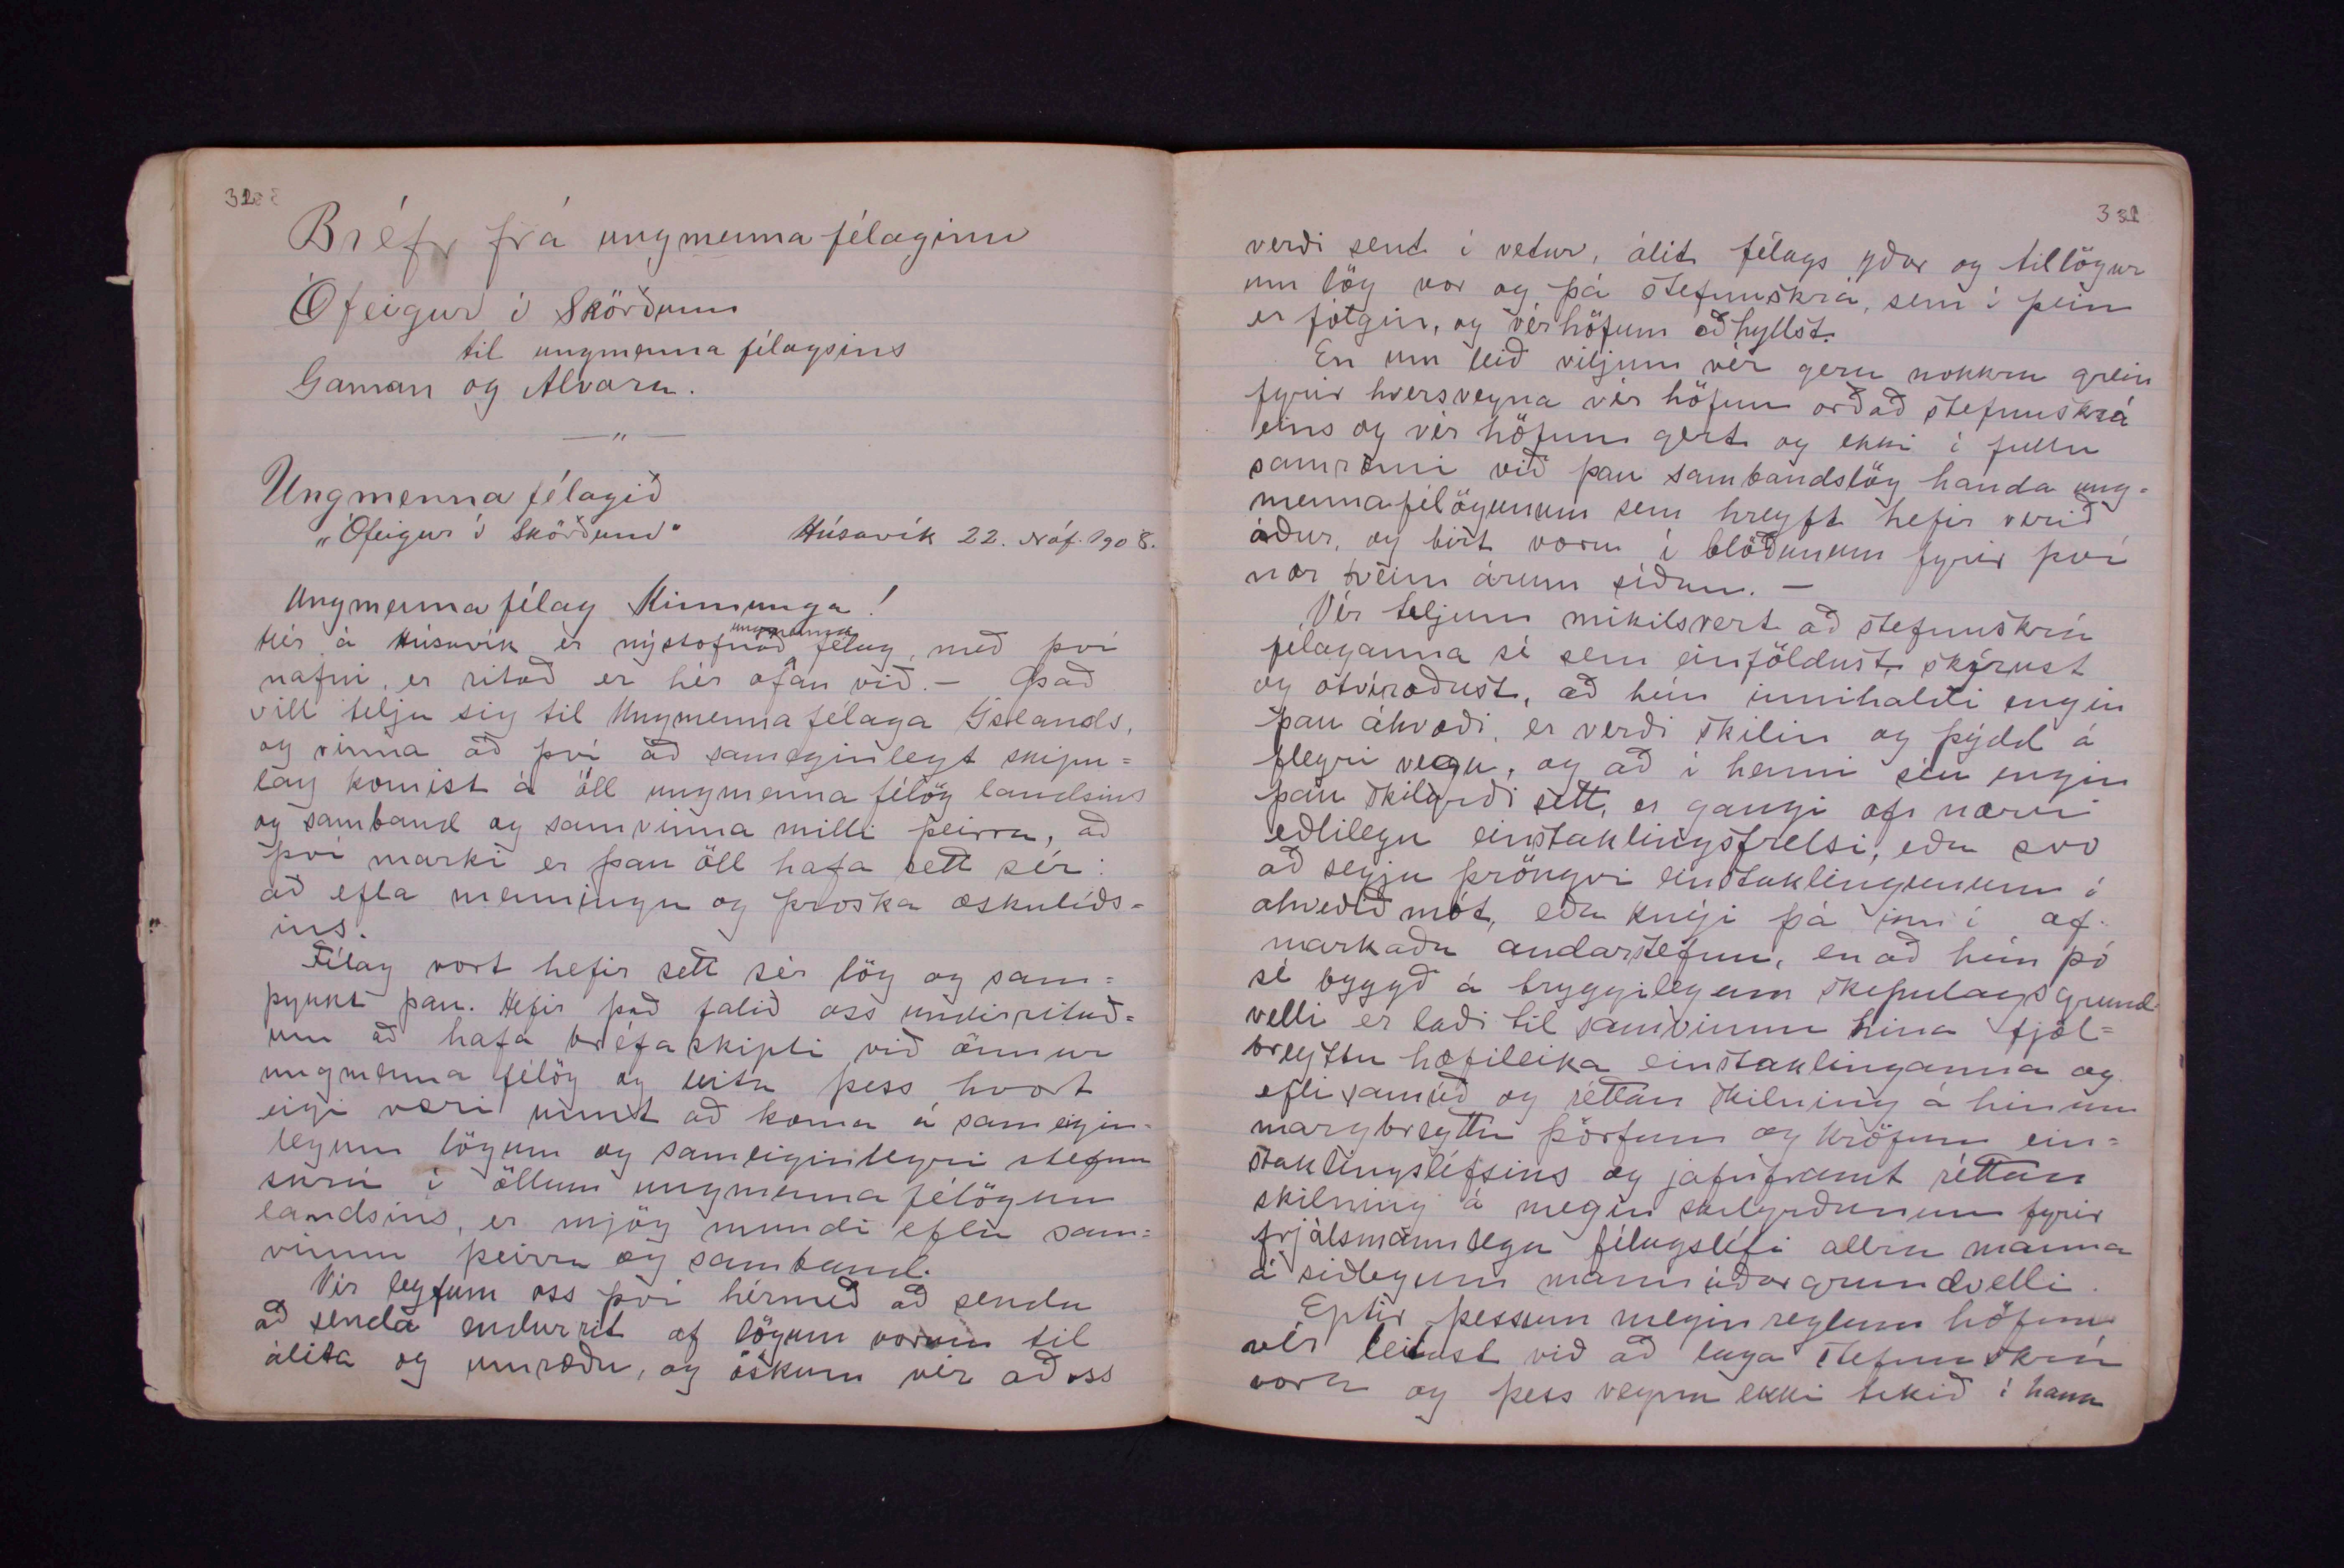 Bréf frá ungmennafélaginu
Ófeigur í Skörðum
til ungmennafélagsins
Gaman og Alvara.
—〃—
Ungmennafélagið
„Ófeigur í Skörðum“ Húsavík 22. Nóf. 1908.
Ungmennafélag Kinnunga!
ungmenna
Hér á Húsavík er nýstofnað félag, með því
nafni, er ritað er hér ofan við. – Það
vill telja sig til Ungmennafélaga Íslands,
og vinna að því að sameginlegt skipu=
lag komist á öll ungmennafélög landsins
og samband og samvinna milli þeirra, að
því marki er þau öll hafa sett sér:
að efla menningu og þroska æskulýðs=
ins.
Félag vort hefir sett sér lög og sam=
þykkt þau. Hefir það falið oss undirrituð=
um að hafa bréfaskipti við önnur
ungmennafélög og leita þess hvort
eigi væri unnt að koma á sameigin=
legum lögum og sameiginlegri stefnu
skrá í öllum ungmennafélögum
landsins, er mjög mundi efla sam=
vinnu þeirra og samband.
Vér leyfum oss því hérmeð að senda
að senda endurrit af lögum vorum til
álita og umræðu, og óskum vér að oss
verði sent í vetur, álit félags yðar og tillögur
um lög vor og þá stefnuskrá, sem í þeim
er fólgin, og vér höfum aðhyllst.
En um leið viljum vér gera nokkra grein
fyrir hversvegna vér höfum orðað stefnuskrá
eins og vér höfum gert og ekki í fullu
samræmi við þau sambandslög handa ung=
mennafélögunum sem hreyft hefir verið
áður, og birt voru í blöðunum fyrir því
nær tveim árum síðan. –
Vér teljum mikilsvert að stefnuskrá
félaganna sé sem einföldust, skýrust
og ótvíræðust, að hún innihaldi engin
þau ákvæði, er verði skilin og þýdd á
fleyri vegu, og að í henni séu engin
þau skilyrði sett, er gangi of nærri
eðlilegu einstaklingsfrelsi, eða svo
að segja þröngvi einstaklingunum í
ákveðið mót, eða knýi þá inn í af=
markaða andarstefnu, en að hún þó
sé byggð á tryggilegum skipulagsgrund
velli er laði til samvinnu hina fjöl=
breyttu hæfileika einstaklinganna og
efli samúð og réttan skilning á hinum
margbreyttu þörfum og kröfum ein=
staklingslífsins og jafnframt réttan
skilning á megin skilyrðunum fyrir
frjálsmannlegu félagslífi allra manna
á siðlegum mannúðargrundvelli.
Eptir þessum meginreglum höfum
vér leitast við að laga stefnuskrá
vora og þess vegna ekki tekið í hana